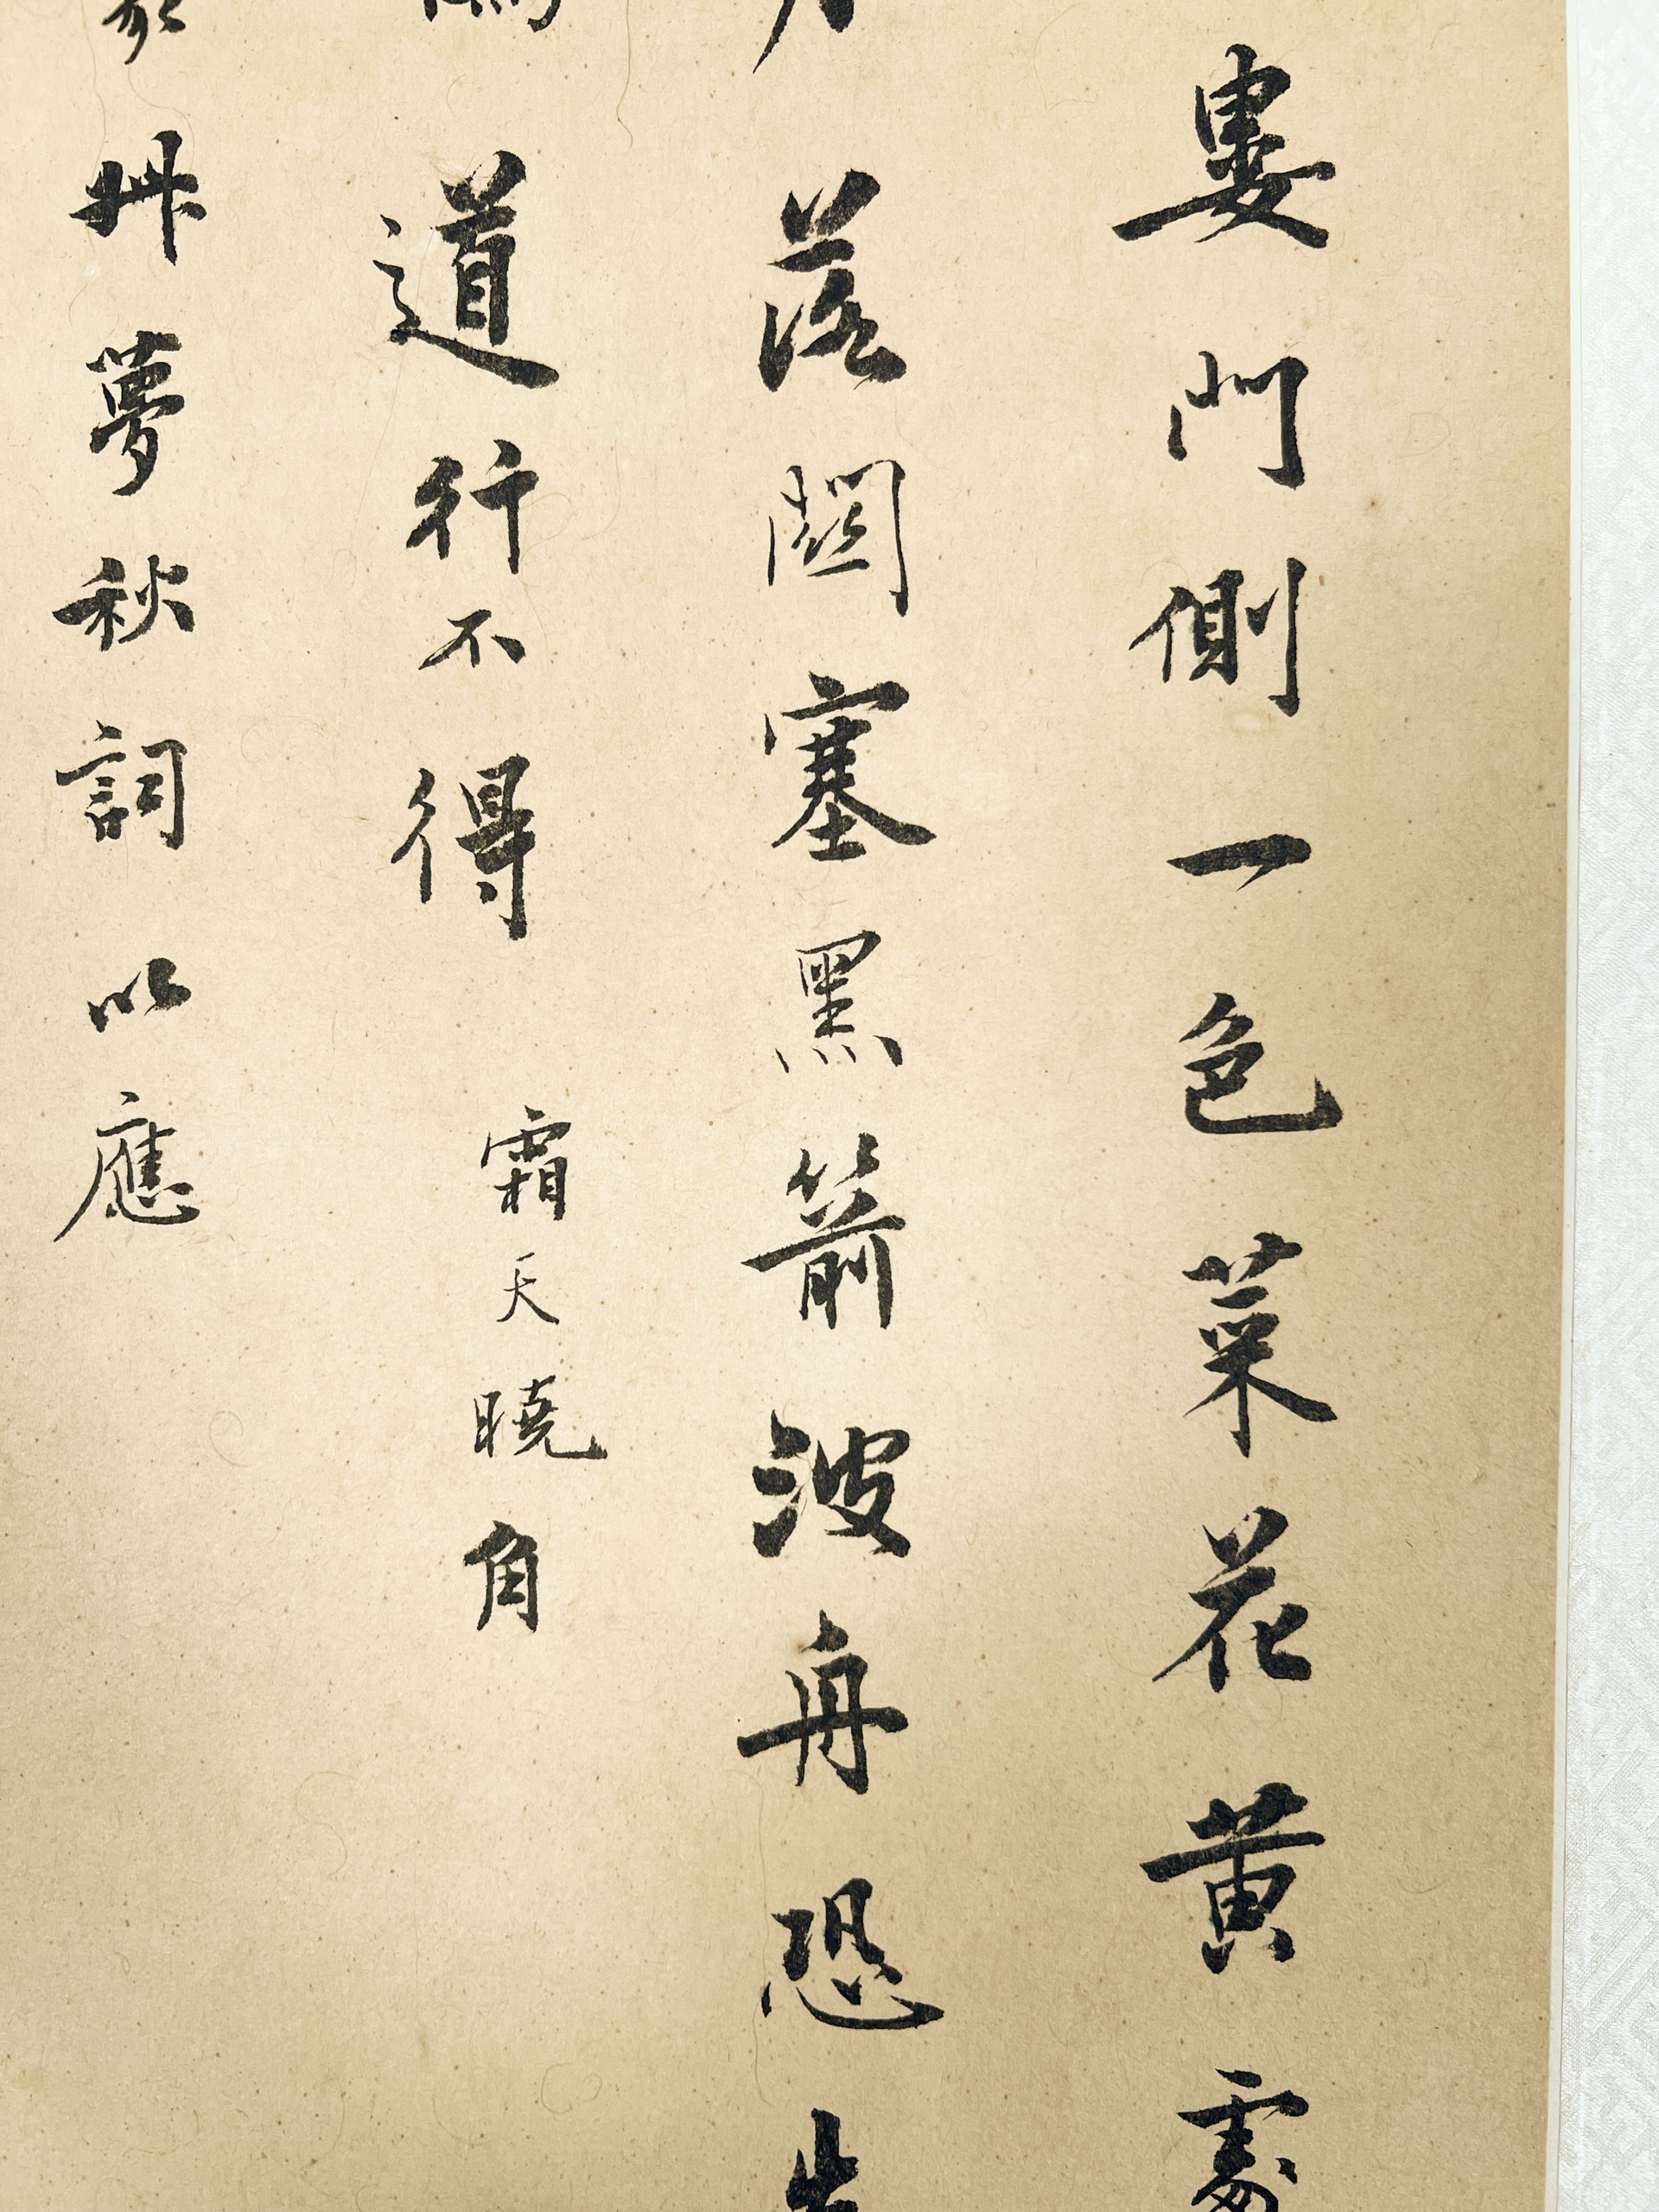 婁門側一色菜花黄處
落關塞黑箭波舟恐
道行不得 霜天曉角
艸夢秋詞以應